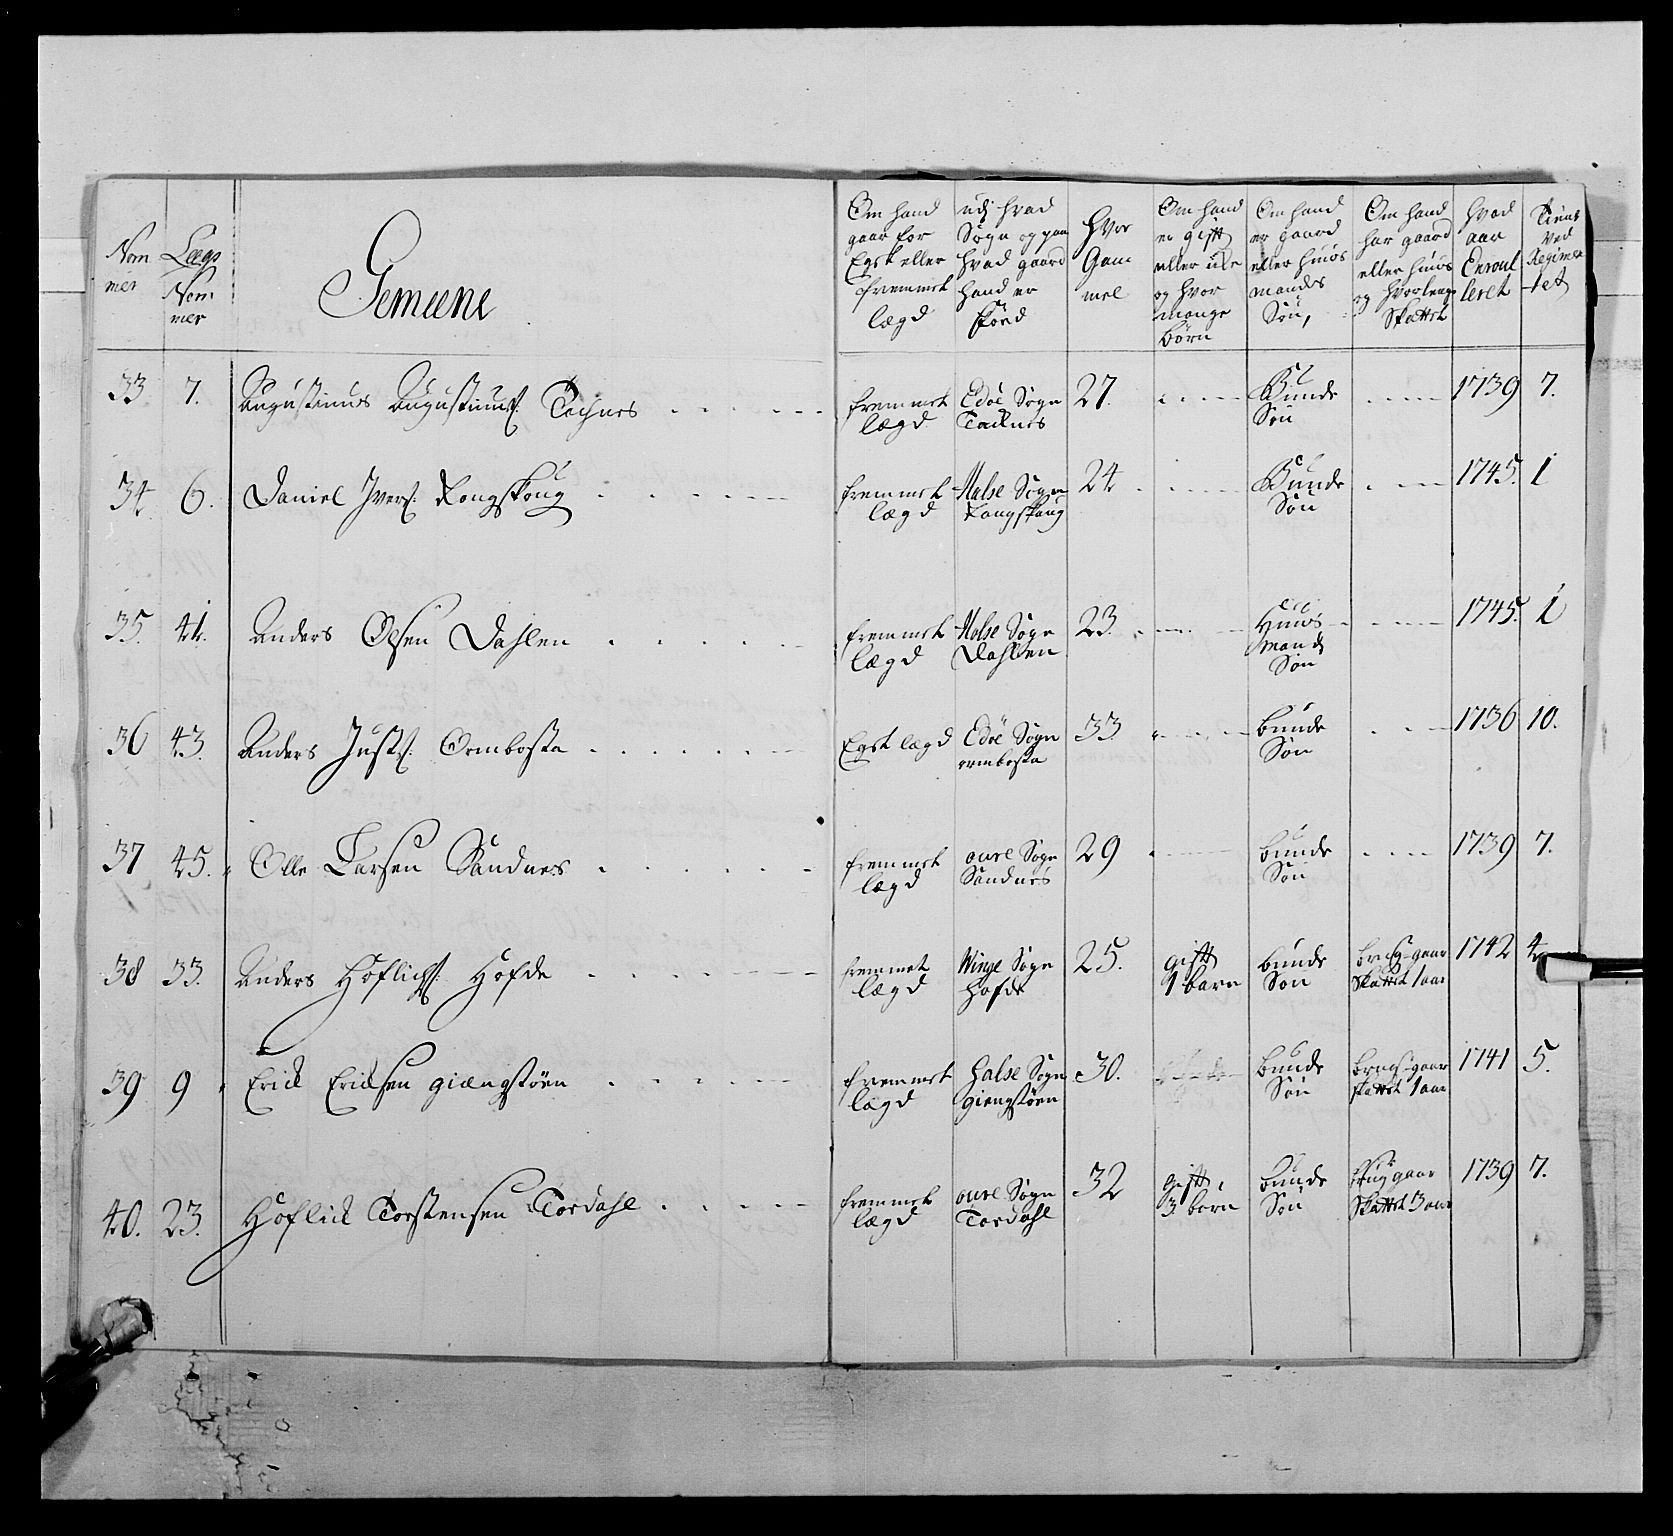 Nom mer
Lægs Nom mer
Gemeene
Om hand gaar for Egst eller fremmet lægd
udj hvad Sogn og paa hvad gaard hand er född
Hvor Gam mel
Om hand er gift eller icke og hvor mange börn
Om hand er gaard eller huus mandes Sön,
Om hand har gaard eller huus og hvorlenge Skattet
hvad aar Enroul leret
Tient ved Regimen tet
33 7. Augustinus Augustinus: Tachnes fremmet lægd Edöe Sogn Tacknes 27. Bunde Sön 1739 7.
34 6. Daniel Ivers: Rongskoug fremmet lægd Halse Sogn Rongskoug 24 Bunde Sön 1745. 1
35. 41. Anders Olsen Dahlen fremmet lægd Halse Sogn Dahlen 23. Huus mands Sön 1745. 1
36 43. Anders Justs: Ormbosta Egst lægd Edöe Sogn ormbosta 33 bunde Sön 1736 10.
37 45. Olle Larsen Sandnes fremmet lægd oure Sogn Sandnes 29 bunde Sön 1739 7.
38 33. Anders Höflichs: Hofde fremmet lægd Winge Sogn Hofde 25. gift 1 barn bunde Sön brug-gaar Skattet 1 aar 1742 4.
39 9 Erick Ericksen giængstöen fremmet lægd Halse Sogn giengstöen 30. bunde Sön brug-gaar skattet 1 aar 1741 5.
40. 23. Höflick Torstensen Tordahl fremmet lægd oure Sogn Tordahl 32 gift, 3 börn bunde Sön bruggaar Skattet 3 aar 1739 7.